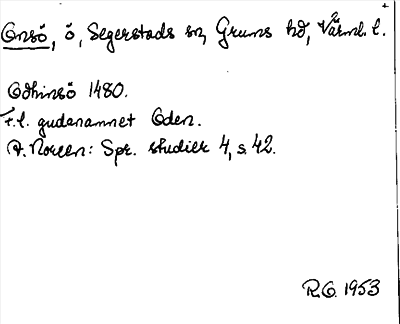 Onsö, ö, Segerstads sn, Grums hd, Värml. l.
Odhinsö 1480.
F.l. gudanamnet Oden.
A. Noreen: Spr. studier 4, s. 42.
R.O. 1953